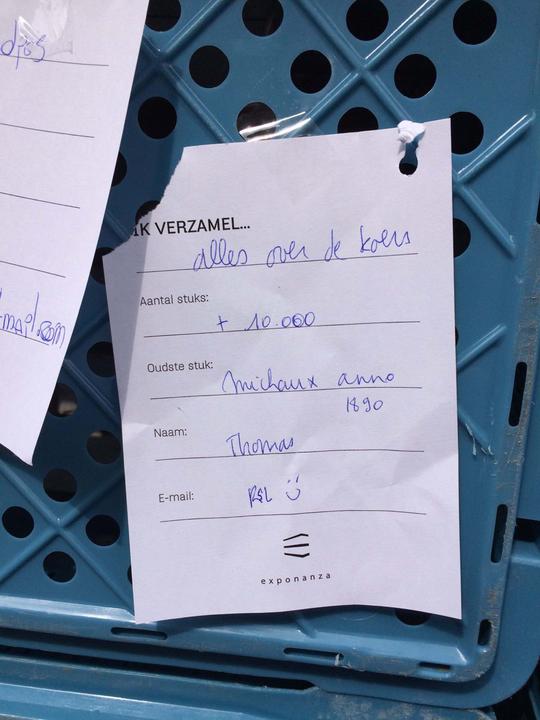 IK VERZAMEL...
alles over de koers
Aantal stuks:
+ 10.000
Oudste stuk:
Michaux anno
1890
Naam:
Thomas
E-mail:
exponanza